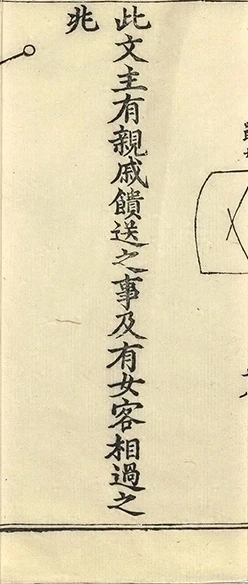 此文主有親戚饋送之事及有女客相過之
兆